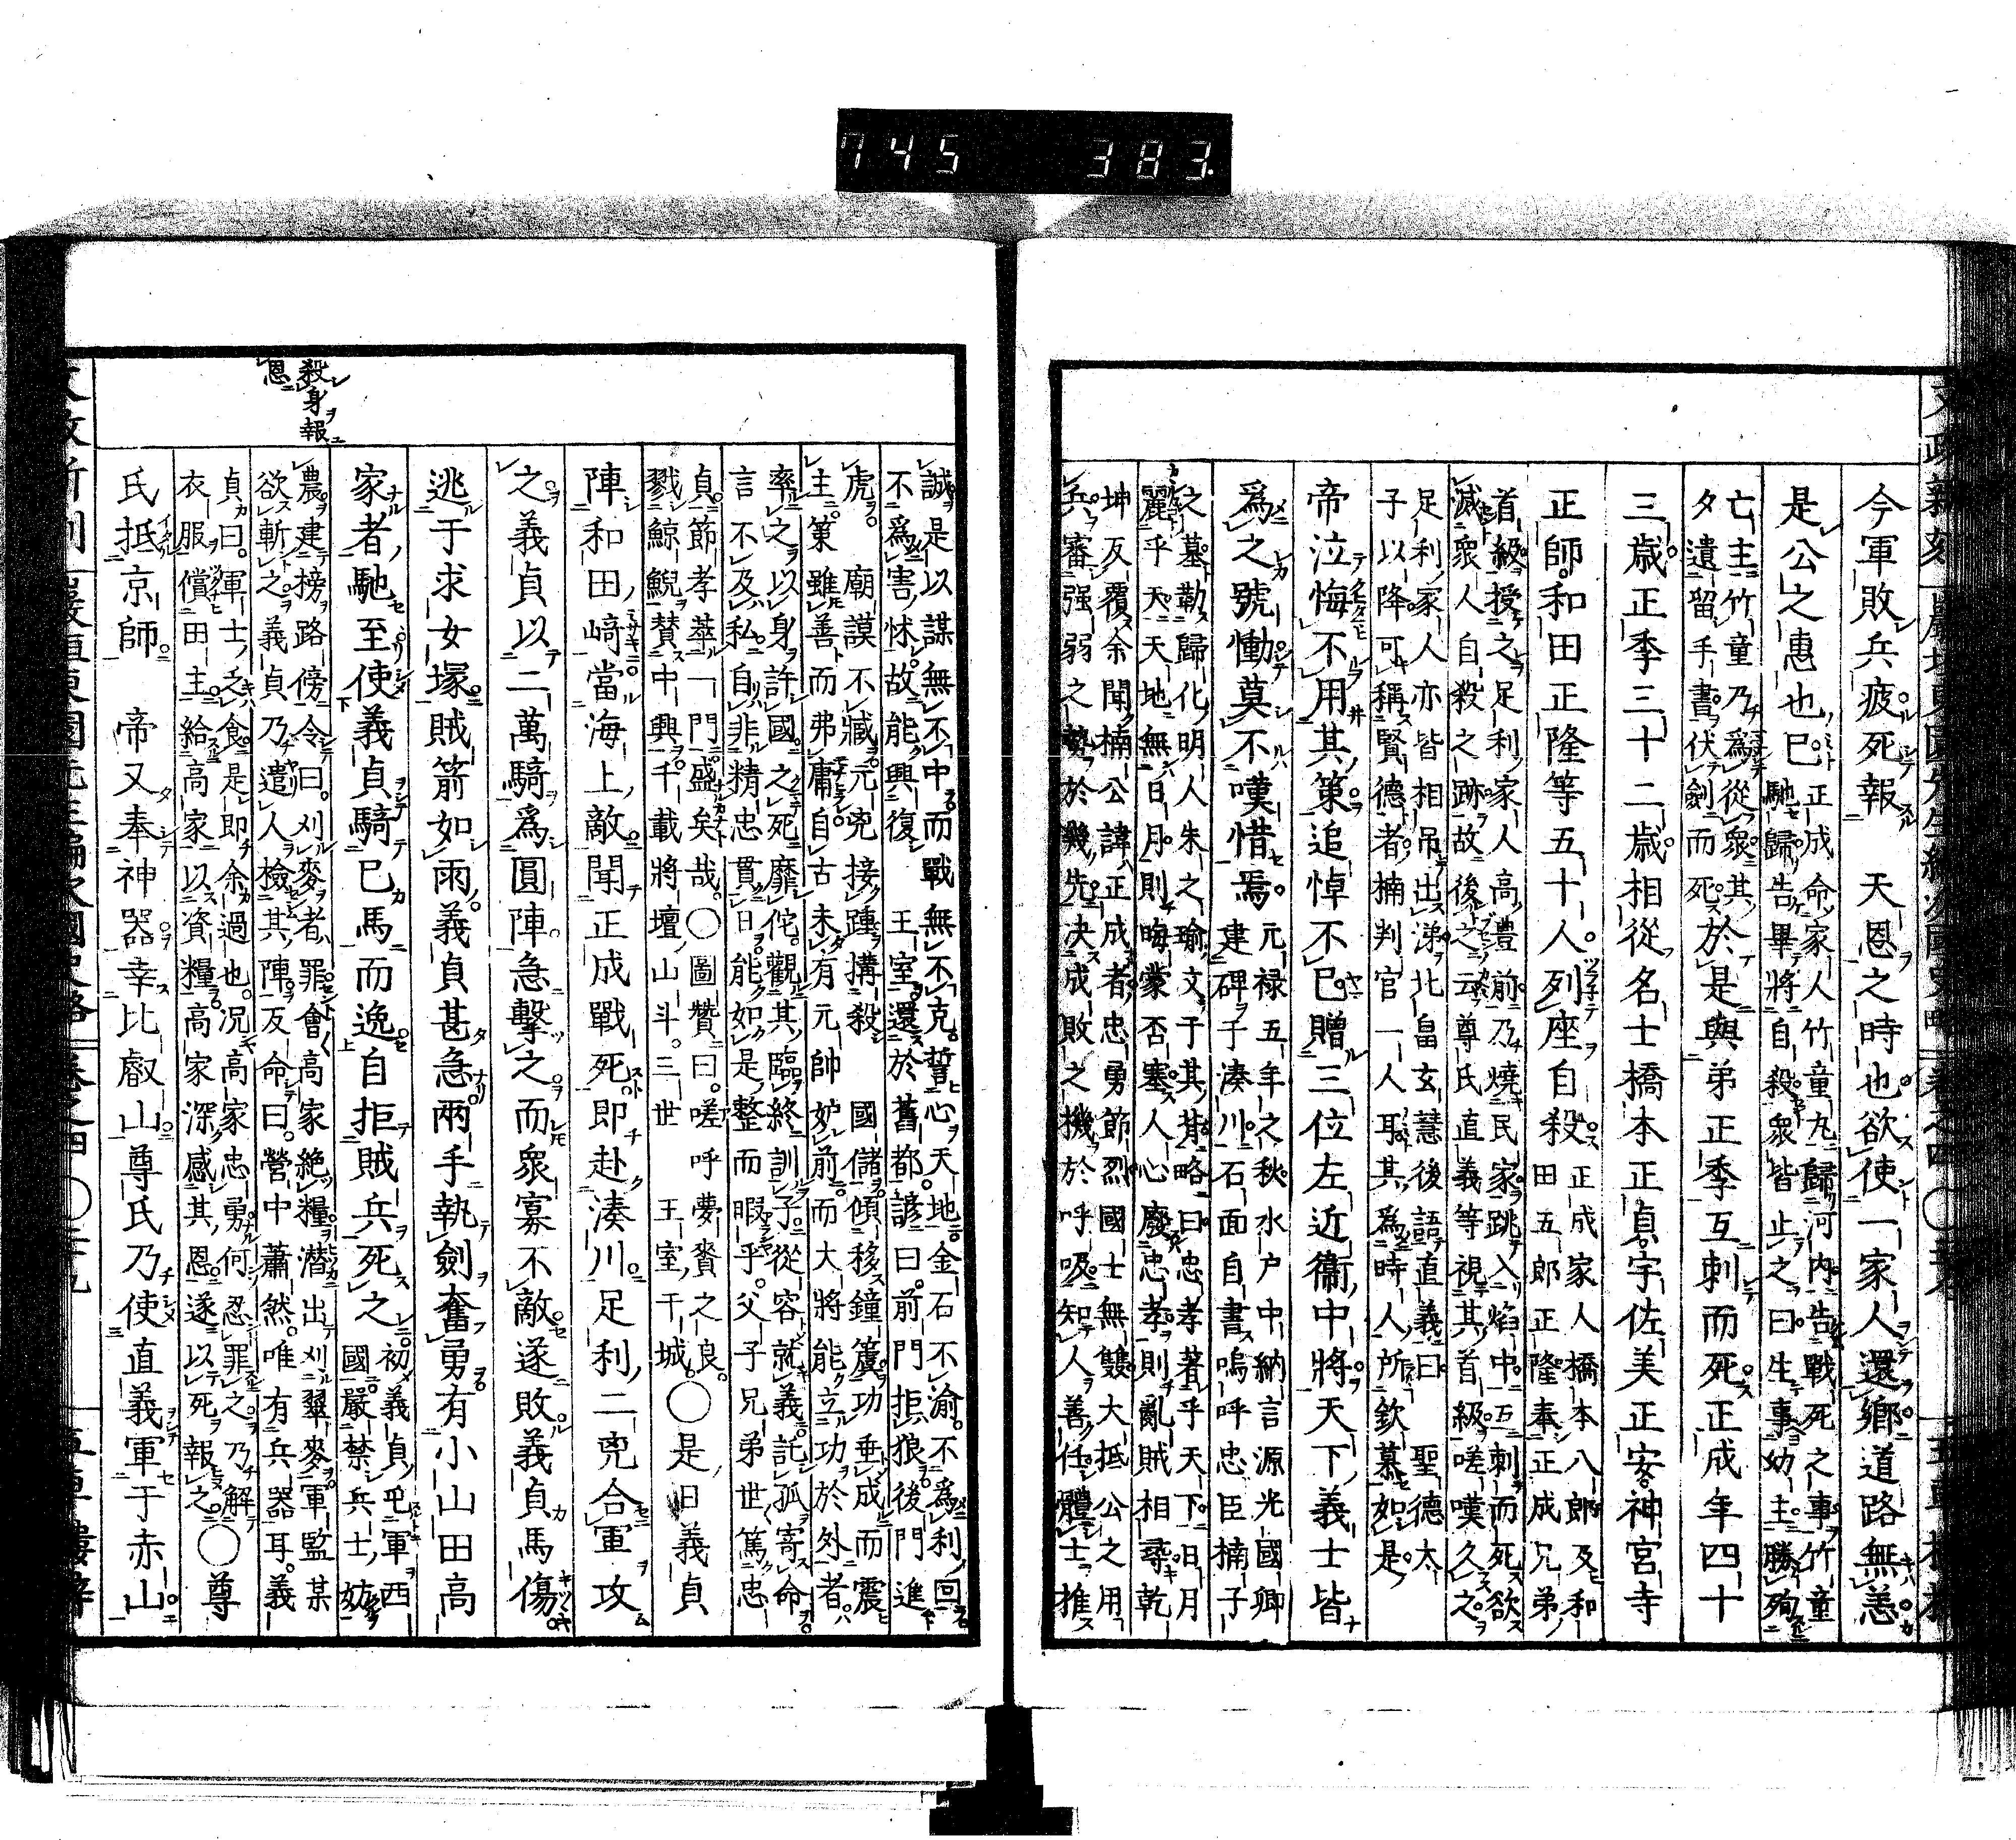 745 383.
今軍敗兵疲死報 天恩之時也欲使一家人還鄉道路無恙
是公之惠也已
正成命家人竹童丸歸河内告戰死之事竹童
馳歸告畢將自殺衆皆止之曰生事幼主勝殉
亡主竹童乃爲從衆其
夕遺留手書伏劍而死
於是與弟正季互刺而死正成年四十
三歲正季三十二歲相從名士橋本正貞宇佐美正安神宮寺
正師和田正隆等五十人列座自殺
正成家人橋本八郎及和
田五郎正隆奉正成兄弟
首級授之足利家人高豊前乃燒民家跳入焰中互刺而死欲
滅衆人自殺之跡故後之云尊氏直義等視其首級嗟嘆久之
足利家人亦皆相吊出涕北畠玄慧後語直義曰 聖德太
子以降可稱賢德者楠判官一人耳其爲時人所欽慕如是
帝泣悔不用其策追悼不已贈三位左近衞中將天下義士皆
爲之號慟莫不嘆惜焉
元禄五年之秋水户中納言源光國卿
建碑于湊川石面自書嗚呼忠臣楠子
之墓勒歸化明人朱之瑜文于其背略曰忠孝著乎天下日月
麗乎天天地無日月則晦蒙否塞人心廢忠孝則亂賊相尋乾
坤反覆余聞楠公諱正成者忠勇節烈國士無雙大抵公之用
兵審强弱之勢於幾先决成敗之機於呼吸知人善任體士推
誠是以謀無不中而戰無不克誓心天地金石不渝不爲利回
不爲害怵故能興復 王室還於舊都諺曰前門拒狼後門進
虎 廟謨不臧元兇接踵搆殺 國儲傾移鐘簴功垂成而震
主策雖善而弗庸自古未有元帥妒前而大將能立功於外者
率之以身許國之死靡佗觀其臨終訓子從容就義託孤寄命
言不及私自非精忠貫日能如是整而暇乎父子兄弟世篤忠
貞節孝萃一門盛矣哉○圖贊曰嗟呼夢賚之良
戮鯨鯢賛中興千載將壇山斗三世 王室干城○是日義貞
陣和田﨑當海上敵聞正成戰死即赴湊川足利二兇合軍攻
之義貞以二萬騎爲圓陣急擊之而衆寡不敵遂敗義貞馬傷
逃于求女塚賊箭如雨義貞甚急兩手執劍奮勇有小山田高
家者馳至使義貞騎已馬而逸自拒賊兵死之
初義貞屯軍西
國嚴禁兵士妨
農建榜路傍令曰刈麥者罪會高家絶糧潜出刈翠麥軍監某
欲斬之義貞乃遣人檢其陣反命曰營中蕭然唯有兵器耳義
貞曰軍士乏食是即余過也况高家忠勇何忍罪之乃解
衣服償田主給高家以資糧高家深感其恩遂以死報之○尊
氏抵京師 帝又奉神器幸比叡山尊氏乃使直義軍于赤山
殺身報
恩